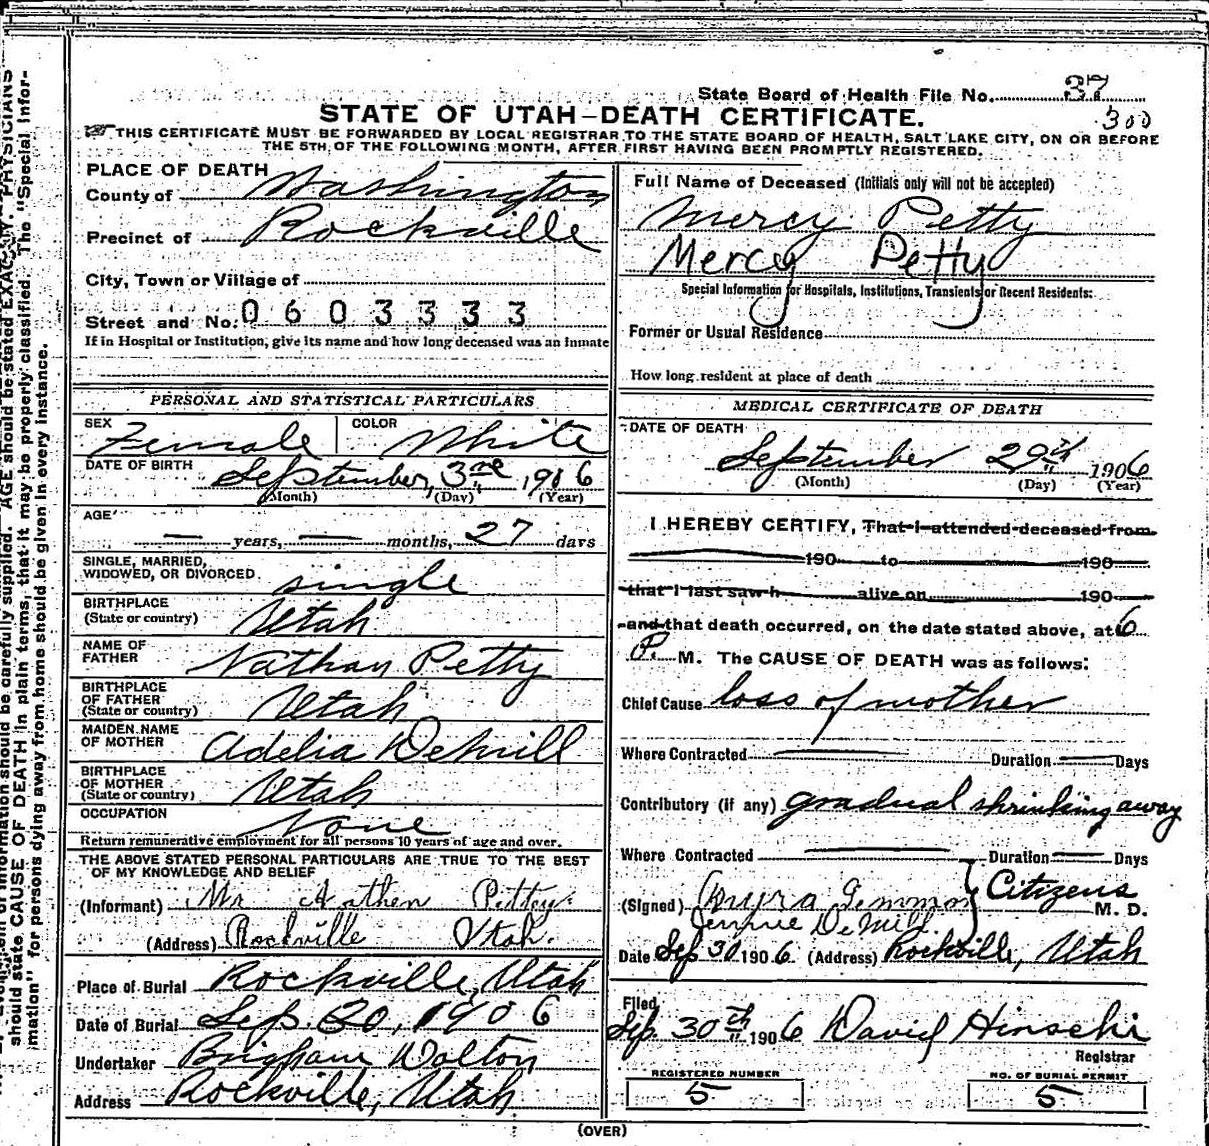 State Board of Health File No. 37
300
STATE OF UTAH—DEATH CERTIFICATE.
THIS CERTIFICATE MUST BE FORWARDED BY LOCAL REGISTRAR TO THE STATE BOARD OF HEALTH, SALT LAKE CITY, ON OR BEFORE
THE 5TH OF THE FOLLOWING MONTH, AFTER FIRST HAVING BEEN PROMPTLY REGISTERED.
PLACE OF DEATH
County of Washington
Precinct of Rockville
City, Town or Village of
Street and No. 0603333
If in Hospital or Institution, give its name and how long deceased was an inmate
Full Name of Deceased (Initials only will not be accepted)
Mercy Petty
Mercy Petty
Special Information for Hospitals, Institutions, Transients or Recent Residents:
Former or Usual Residence
How long resident at place of death
PERSONAL AND STATISTICAL PARTICULARS
SEX Female COLOR White
DATE OF BIRTH September, 3rd, 1906
(Month) (Day) (Year)
AGE — years, — months, 27 days
SINGLE, MARRIED,
WIDOWED, OR DIVORCED single
BIRTHPLACE
(State or country) Utah
NAME OF
FATHER Nathan Petty
BIRTHPLACE
OF FATHER
(State or country) Utah
MAIDEN NAME
OF MOTHER Adelia DeMill
BIRTHPLACE
OF MOTHER
(State or country) Utah
OCCUPATION None
Return remunerative employment for all persons 10 years of age and over.
THE ABOVE STATED PERSONAL PARTICULARS ARE TRUE TO THE BEST
OF MY KNOWLEDGE AND BELIEF
(Informant) Mr Petty
(Address) Rockville Utah.
Place of Burial Rockville, Utah
Date of Burial Sep. 30, 1906
Undertaker Brigham Dalton
Address Rockville, Utah.
MEDICAL CERTIFICATE OF DEATH
DATE OF DEATH
September 29th 1906
(Month) (Day) (Year)
I HEREBY CERTIFY, That I attended deceased from
190 to 190
that I last saw h alive on 190
and that death occurred, on the date stated above, at 6
P. M. The CAUSE OF DEATH was as follows:
Chief Cause loss of mother
Where Contracted — Duration — Days
Contributory (if any) gradual shrinking away
Where Contracted — Duration — Days
(Signed) Citizens M. D.
Jennie DeMill.
Date Sep 30 1906 (Address) Rockville, Utah
Filed
Sep. 30th 1906 David Hirschi
Registrar
REGISTERED NUMBER
5
NO. OF BURIAL PERMIT
5
(OVER)
information should be carefully supplied. AGE should be stated EXACTLY. PHYSICIANS
should state CAUSE OF DEATH in plain terms, that it may be properly classified. The "Special Infor-
mation" for persons dying away from home should be given in every instance.